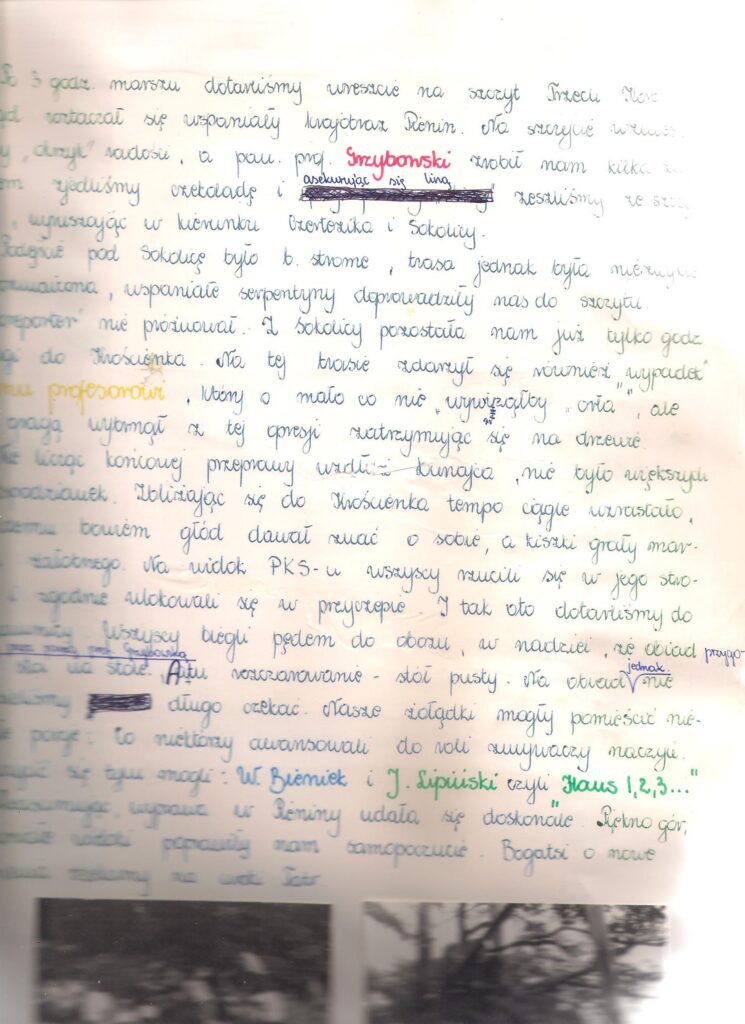 Po 3 godz. marszu dotarliśmy wreszcie na szczyt Trzech Kor
roztaczał się wspaniały krajobraz Pienin. Na szczycie
"okrzyk" radości, a pan. prof. Grzybowski zrobił nam kilka
zjedliśmy czekoladę i asekurując się liną, zeszliśmy ze
, wyruszając w kierunku Czertezika i Sokolicy.
Podejście pod Sokolicę było b. strome, trasa jednak była
, wspaniałe serpentyny doprowadziły nas do szczytu.
reporter" nie próżnował. Z Sokolicy pozostała nam już tylko godz.
do Krościenka. Na tej trasie zdarzył się również "wypadek"
profesorowi, który o mało co nie "wywiązałby orła", ale
wybrnął z tej opresji zatrzymując się na drzewie.
Nie licząc końcowej przeprawy wzdłuż Dunajca, nie było większych
spodzianek. Zbliżając się do Krościenka tempo ciągle wzrastało,
bowiem głód dawał znać o sobie, a kiszki grały mar-
żałobnego. Na widok PKS-u wszyscy rzucili się w jego stro-
i zgodnie ulokowali się w przyczepie. I tak oto dotarliśmy do
Wszyscy biegli pędem do obozu, w nadziei, że obiad przygo-
przez prof. Grzybowską
stoi na stole. A tu rozczarowanie - stół pusty. Na obiad jednak nie
długo czekać. Nasze żołądki mogły pomieścić nie-
porcje: to niektórzy awansowali do roli zmywaczy naczyń.
się tym mogli: W. Bieniek i J. Lipiński czyli "Haus 1,2,3..."
Reasumując, wyprawa w Pieniny udała się doskonale. Piękno gór,
poprawiły nam samopoczucie. Bogatsi o nowe
czekamy na Tatr